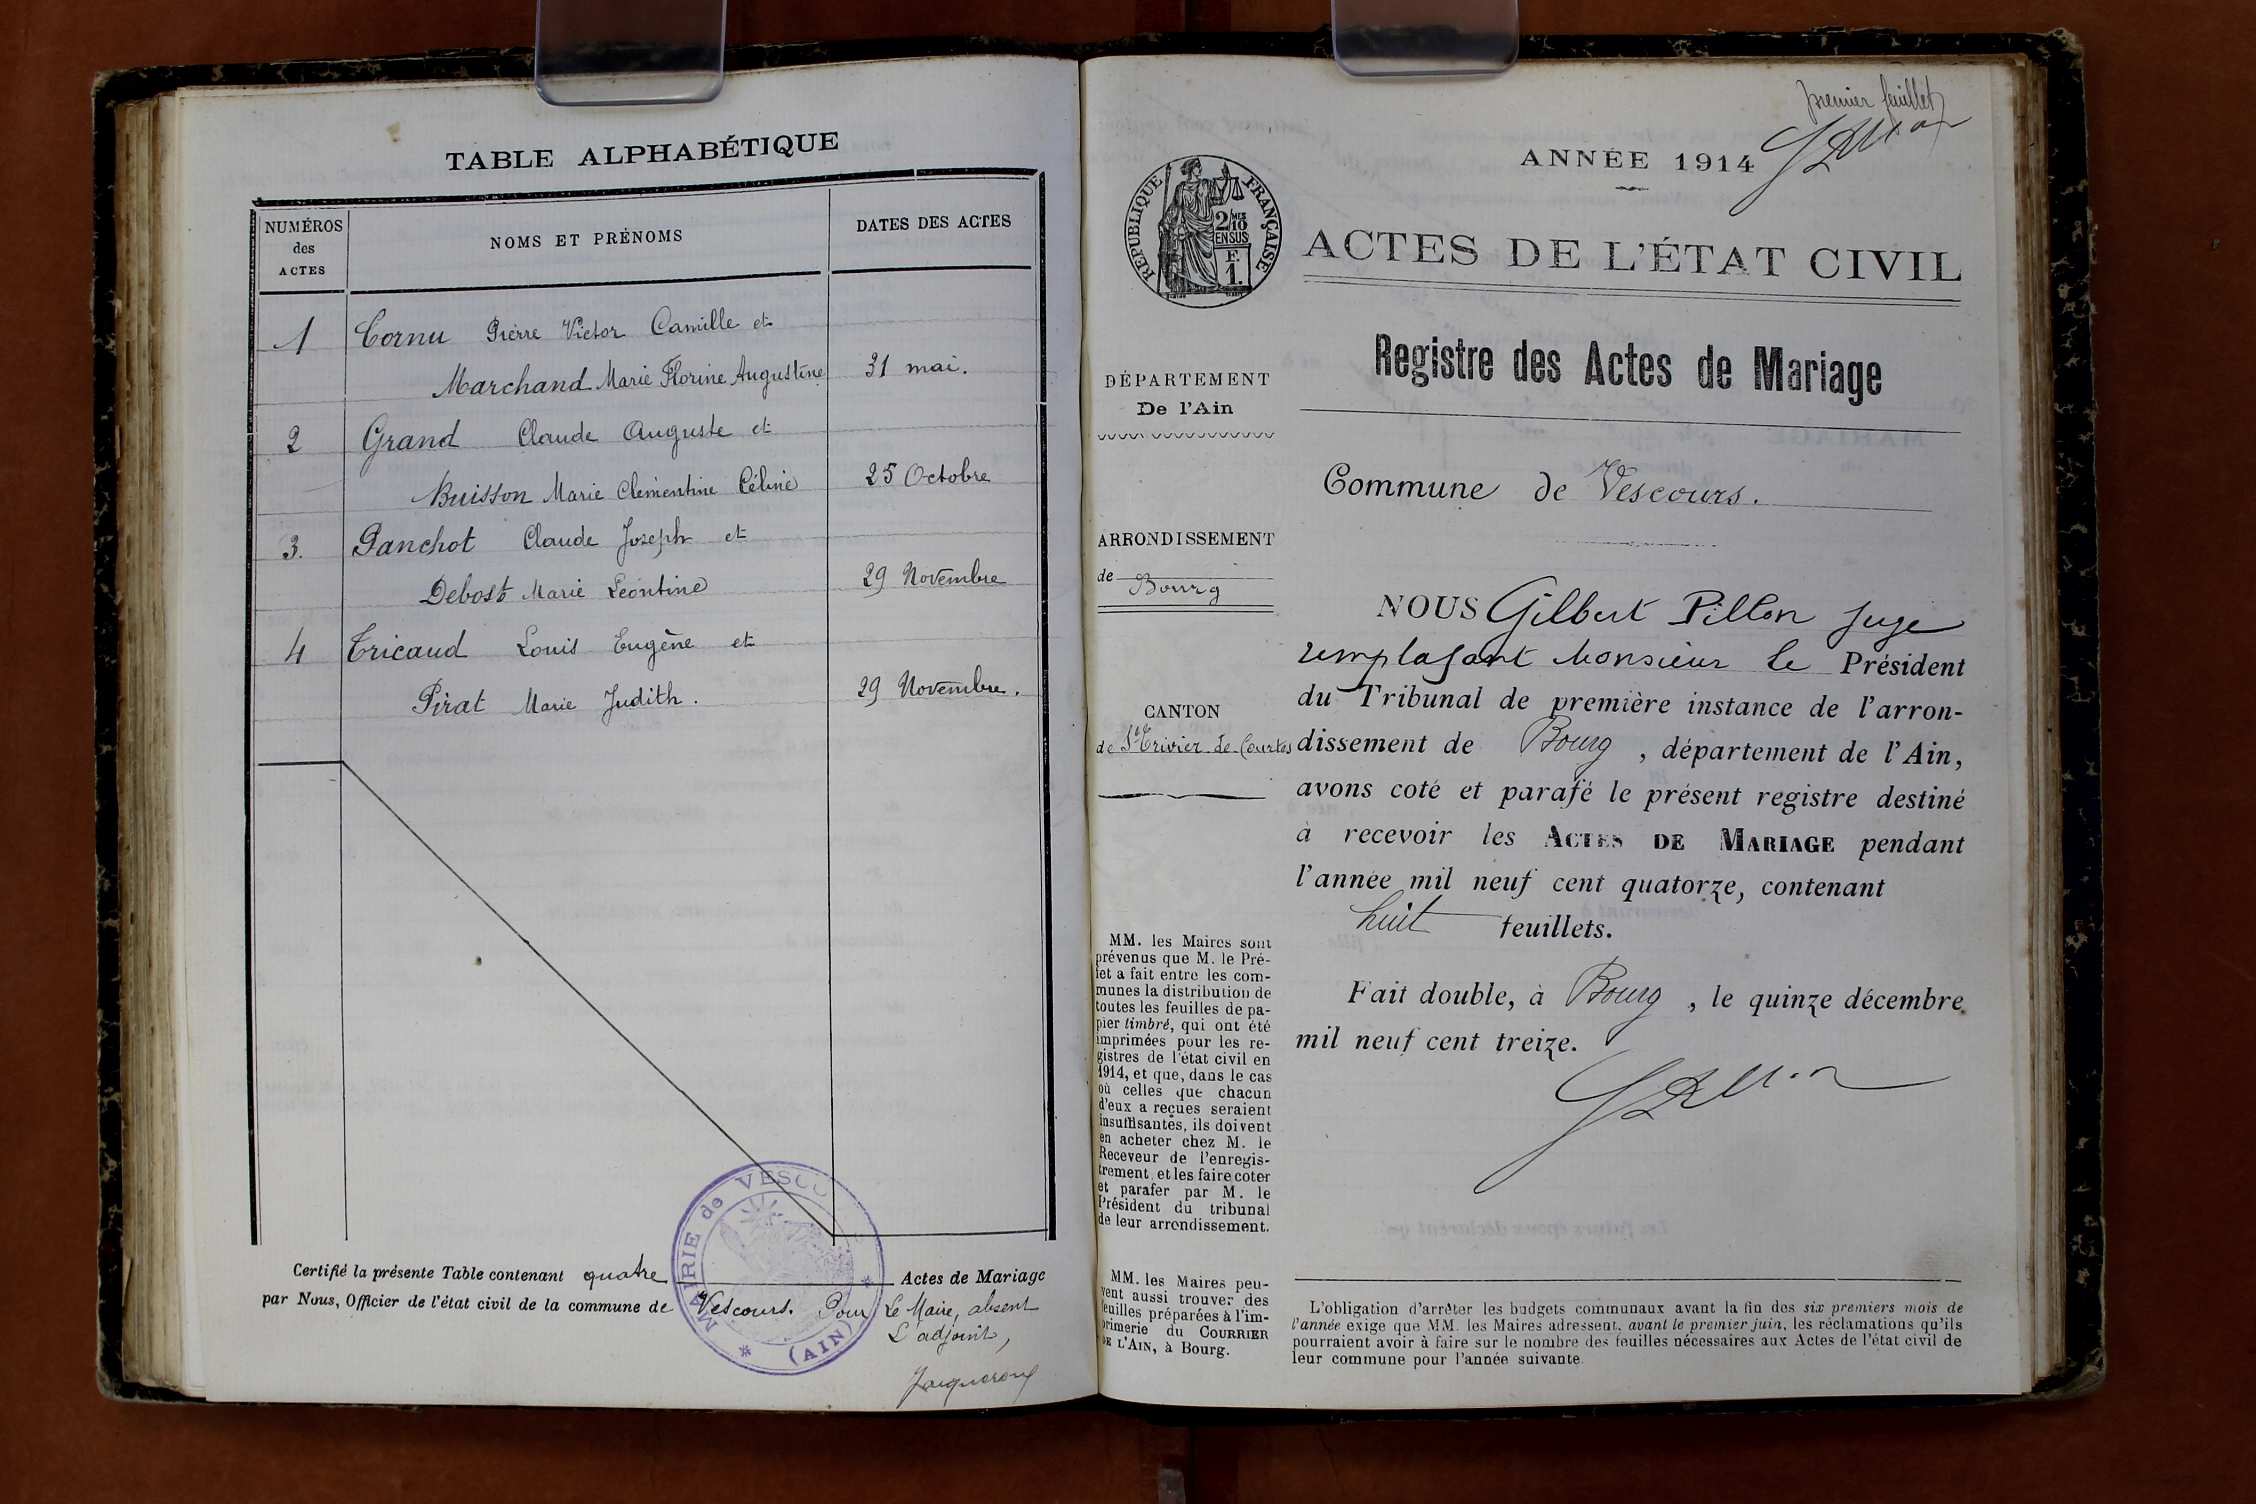 TABLE ALPHABÉTIQUE
NUMÉROS
des
ACTES
NOMS ET PRÉNOMS
DATES DES ACTES
1 Cornu Pierre Victor Camille et
Marchand Marie Florine Augustine 31 mai.
2 Grand Claude Auguste et
Buisson Marie Clémentine Céline 25 Octobre
3. Panchot Claude Joseph et
Debost Marie Léontine 29 Novembre
4 Tricaud Louis Eugène et
Pirat Marie Judith. 29 Novembre.
Certifié la présente Table contenant quatre Actes de Mariage
par Nous, Officier de l'état civil de la commune de Vescours. Pour Le Maire, absent
L'adjoint,
MAIRIE de VESCOU
(AIN)
premier feuillet
ANNÉE 1914
RÉPUBLIQUE FRANÇAISE
2/10 MES
EN SUS
F.
1.
ACTES DE L'ÉTAT CIVIL
Registre des Actes de Mariage
DÉPARTEMENT
De l'Ain
Commune de Vescours.
ARRONDISSEMENT
de Bourg
CANTON
de St Trivier de Courtes
NOUS Gilbert Pillon Juge
remplaçant Monsieur le Président
du Tribunal de première instance de l'arron-
dissement de Bourg, département de l'Ain,
avons coté et parafé le présent registre destiné
à recevoir les ACTES DE MARIAGE pendant
l'année mil neuf cent quatorze, contenant
huit feuillets.
Fait double, à Bourg, le quinze décembre
mil neuf cent treize.
MM. les Maires sont
prévenus que M. le Pré-
fet a fait entre les com-
munes la distribution de
toutes les feuilles de pa-
pier timbré, qui ont été
imprimées pour les re-
gistres de l'état civil en
1914, et que, dans le cas
où celles que chacun
d'eux a reçues seraient
insuffisantes, ils doivent
en acheter chez M. le
Receveur de l'enregis-
trement, et les faire coter
et parafer par M. le
Président du tribunal
de leur arrondissement.
MM. les Maires peu-
vent aussi trouver des
feuilles préparées à l'im-
primerie du COURRIER
DE L'AIN, à Bourg.
L'obligation d'arrêter les budgets communaux avant la fin des six premiers mois de
l'année exige que MM. les Maires adressent, avant le premier juin, les réclamations qu'ils
pourraient avoir à faire sur le nombre des feuilles nécessaires aux Actes de l'état civil de
leur commune pour l'année suivante.